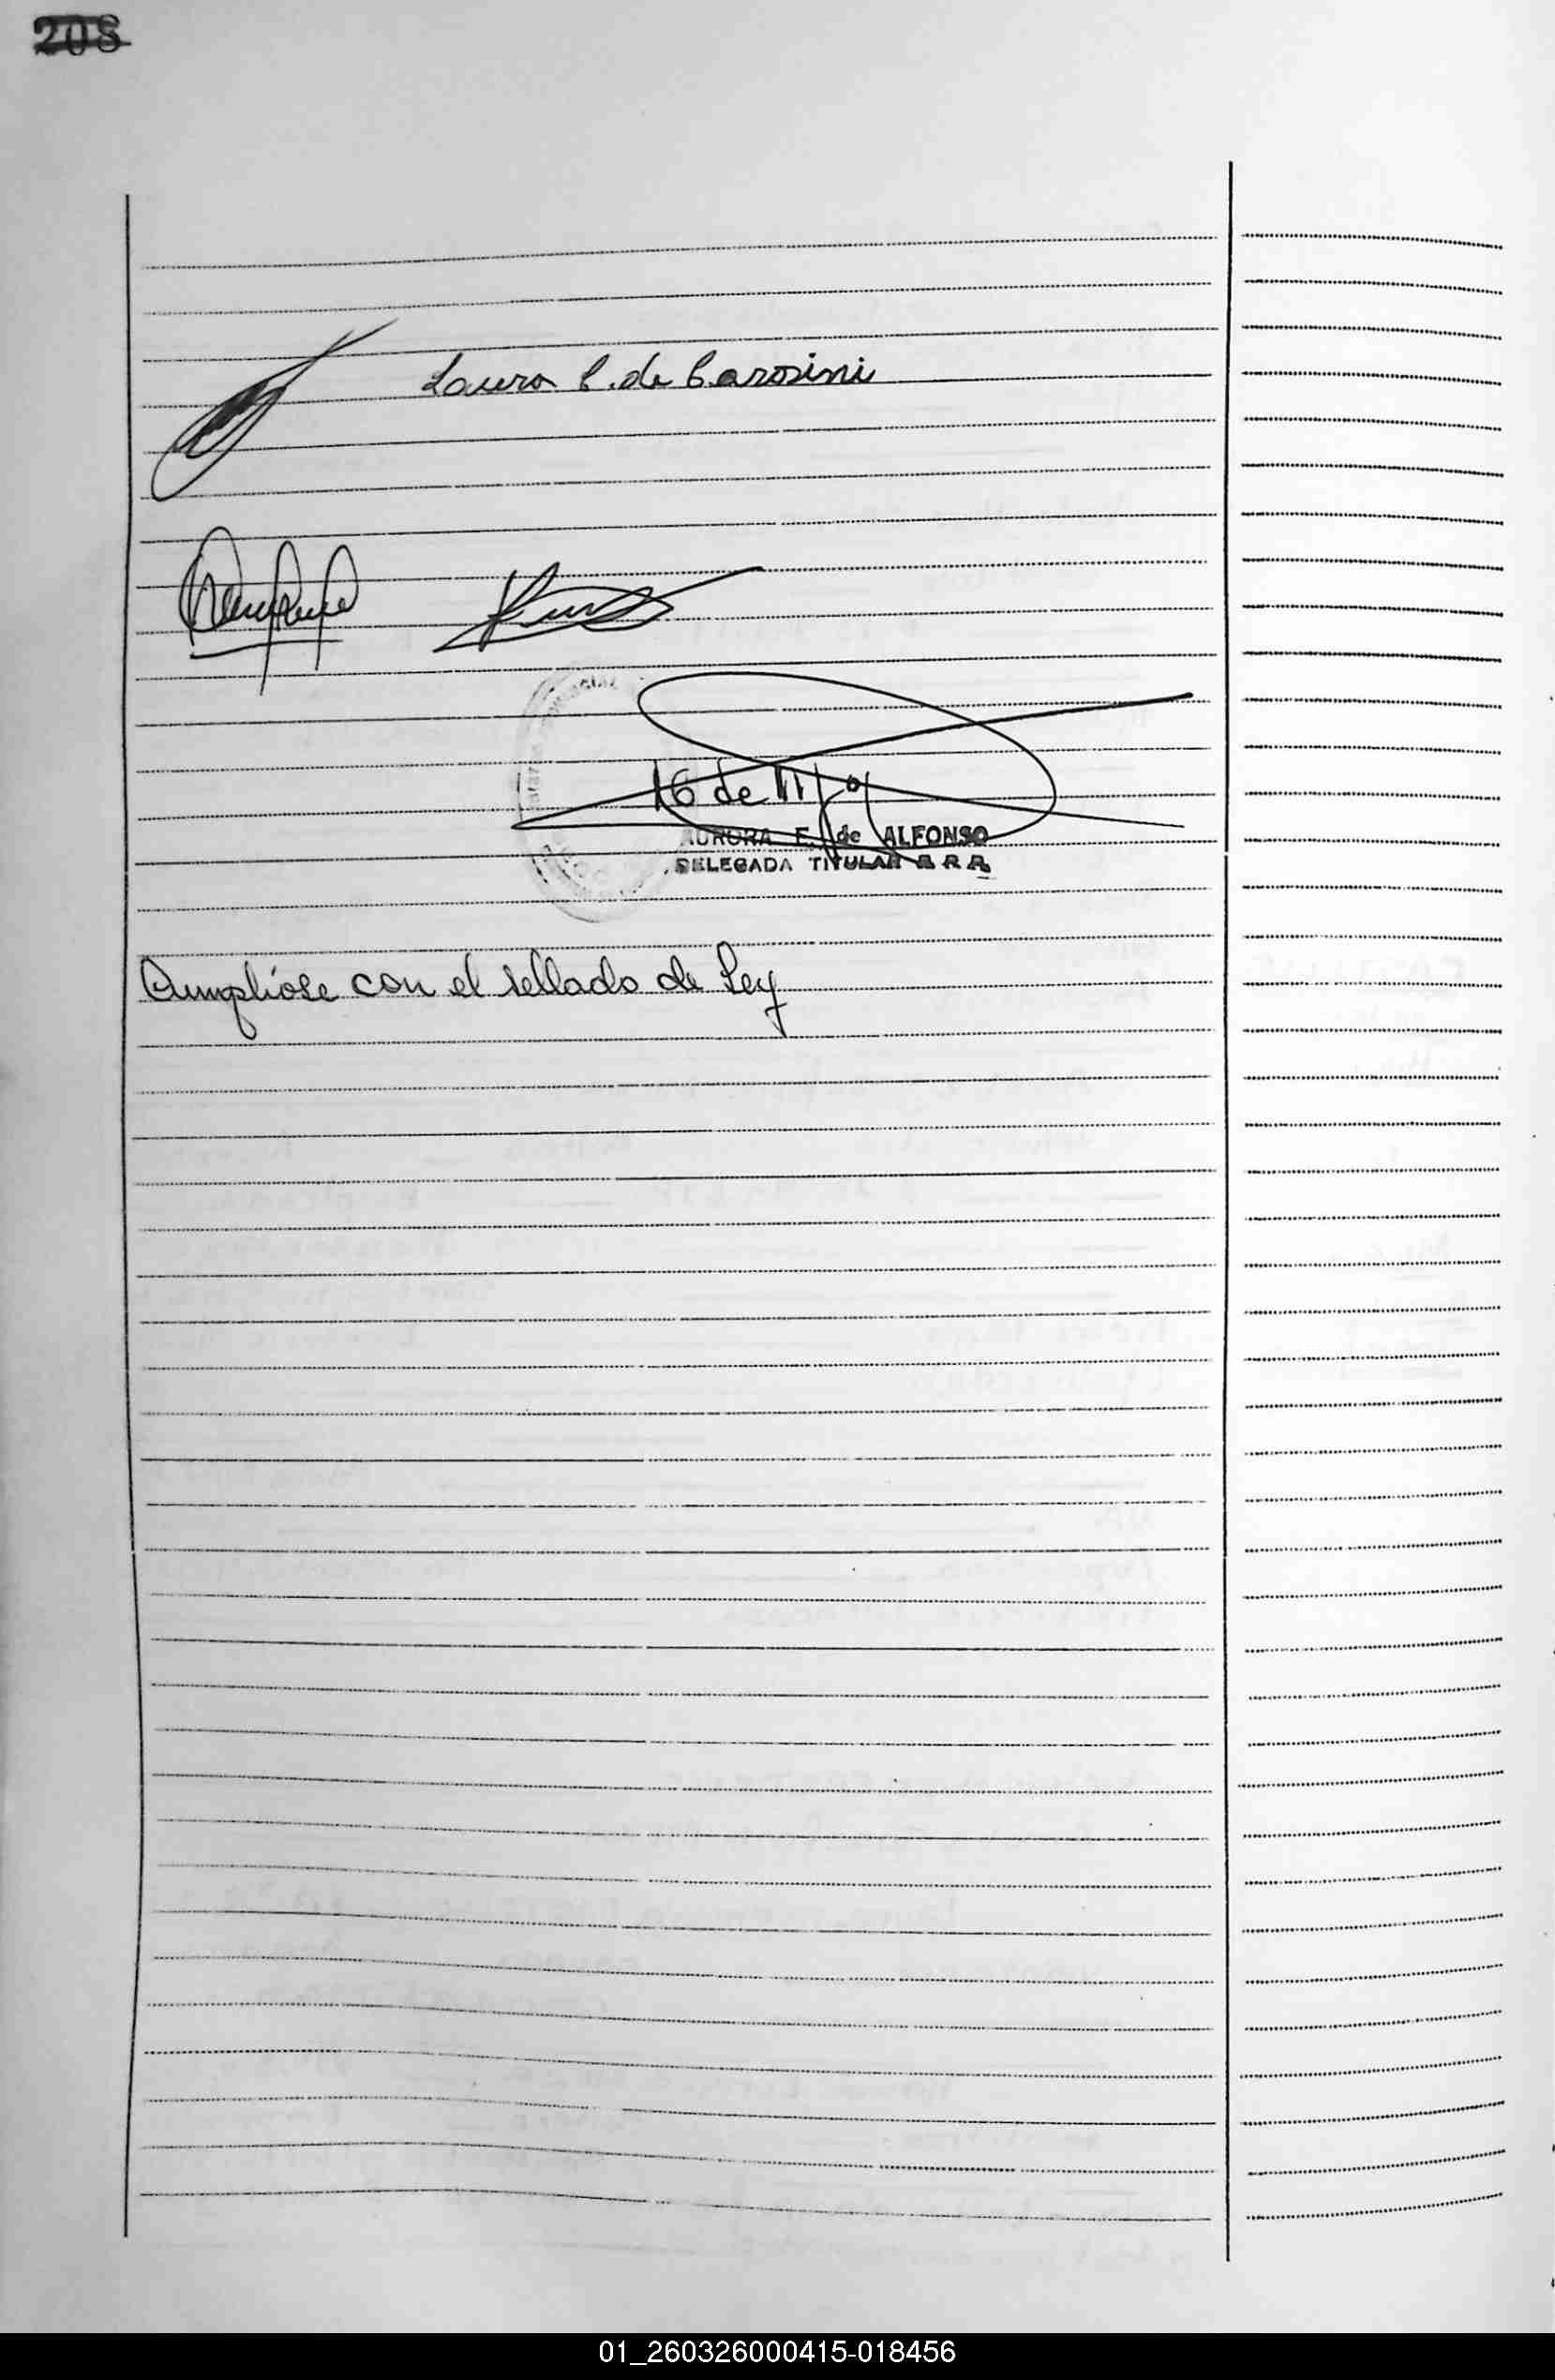 208
Laura C. de Carosini
16 de III/
AURORA E. de ALFONSO
DELEGADA TITULAR B R P.
Cumplióse con el sellado de Ley
01_260326000415-018456